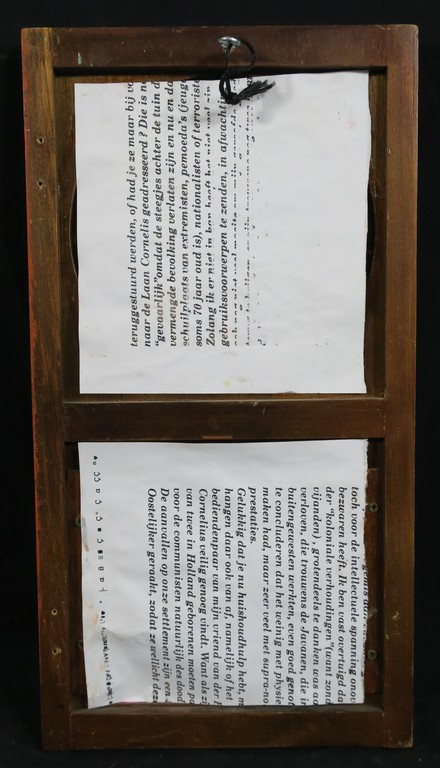 teruggestuurd werden, of had je ze maar bij vo
naar de Laan Cornelis geadresseerd ? Die is no
"gevaarlijk"omdat de steegjes achter de tuin d
vermengde bevolking verlaten zijn en nu en da
schuilplaats van extremisten, pemoeda's (jeug
soms 70 jaar oud is), nationalisten of terroriste
Zolang ik er niet in ben heeft het niet veel zin
gebruiksvoorwerpen te zenden, in afwachtin
toch voor de intellectuele spanning onov
bezwaren heeft. Ik ben vast overtuigd da
der "koloniale verhoudingen "(want zond
vijanden) , grotendeels te danken was aa
verloven, die trouwens de Javanen, die in
buitengewesten werkten, even goed genot
te concluderen dat het weinig met physie
maken had, maar zeer veel met supra-no
prestaties.
Gelukkig dat je nu huishoudhulp hebt, m
hangen daar ook van af, namelijk of het
bediendenpaar van mijn vriend van der P
Cornelius veilig genoeg vindt. Want als zij
van twee in Holland geborenen moeten pa
voor de communisten natuurlijk des dood
De aanvallen op onze settlement zijn een
Oostelijker geraakt, zodat ze wellicht deze